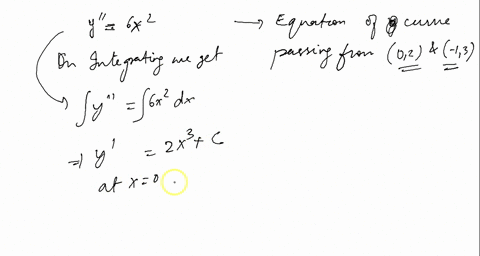 y'' = 6x² → Equation of curve
passing from (0,2) & (-1,3)
On Integrating we get
∫y'' = ∫6x² dx
⇒ y' = 2x³ + C
at x=0